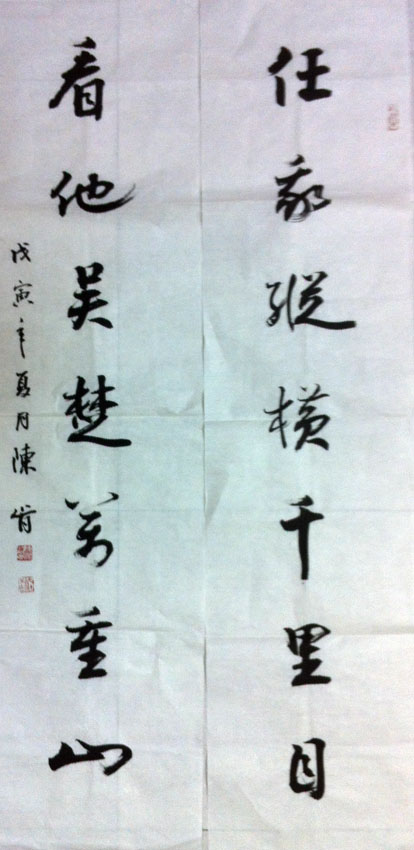 任我縱橫千里目
看他吴楚萬重山
戊寅年夏月陳肯